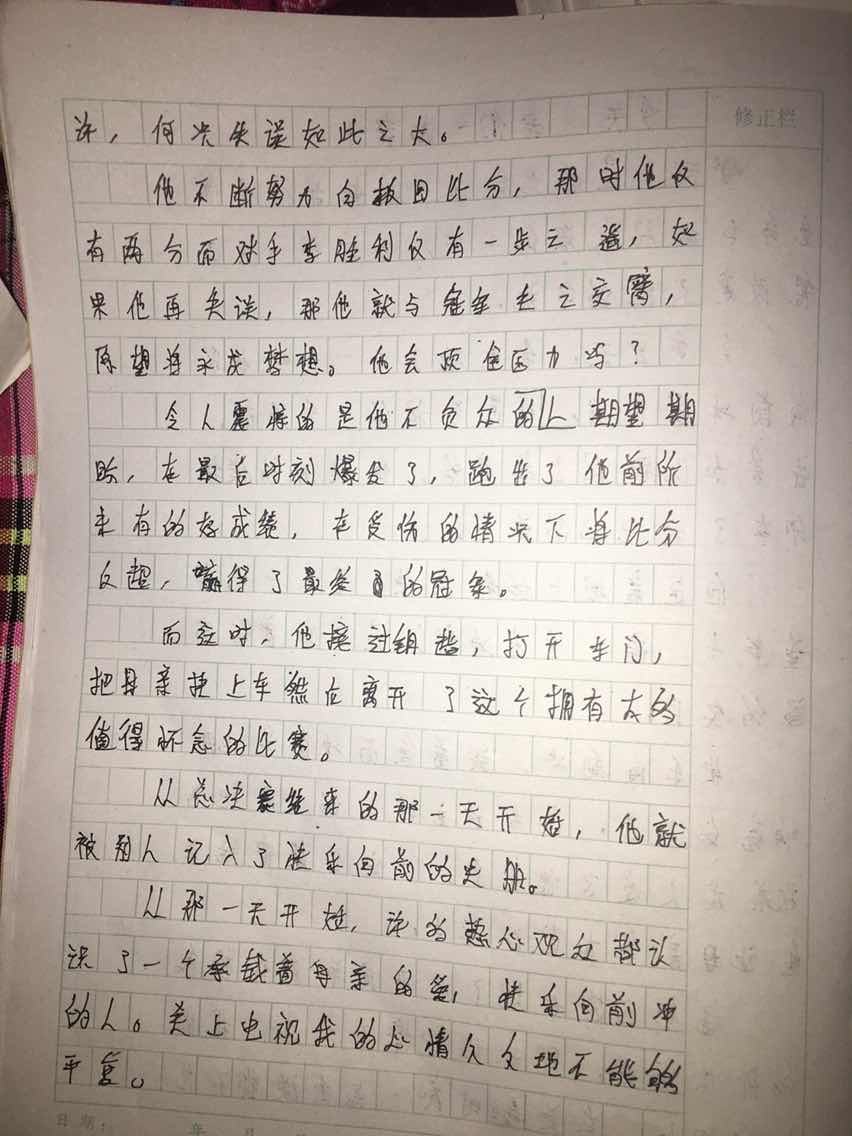 修正栏
次失误如此之大。
他不断努力向扳回比分，那时他仅
有两分而对手李胜利仅有一步之遥，如
果他再失误，那他就与冠军失之交臂，
愿望将永成梦想。他会顶住压力吗？
令人震惊的是他不负众的人期望期
盼，在最后时刻爆发了，跑出了他前所
未有的好成绩，在受伤的情况下将比分
反超，赢得了最终的冠军。
而这时，他接过钥匙，打开车门，
把母亲接上车然后离开了这个拥有太多
值得怀念的比赛。
从总决赛结束的那一天开始，他就
被别人记入了快乐向前的史册。
从那一天开始，许多热心观众都认
识了一个承载着母亲的爱，快乐向前冲
的人。关上电视我的心情久久地不能够
平复。
日期： 年